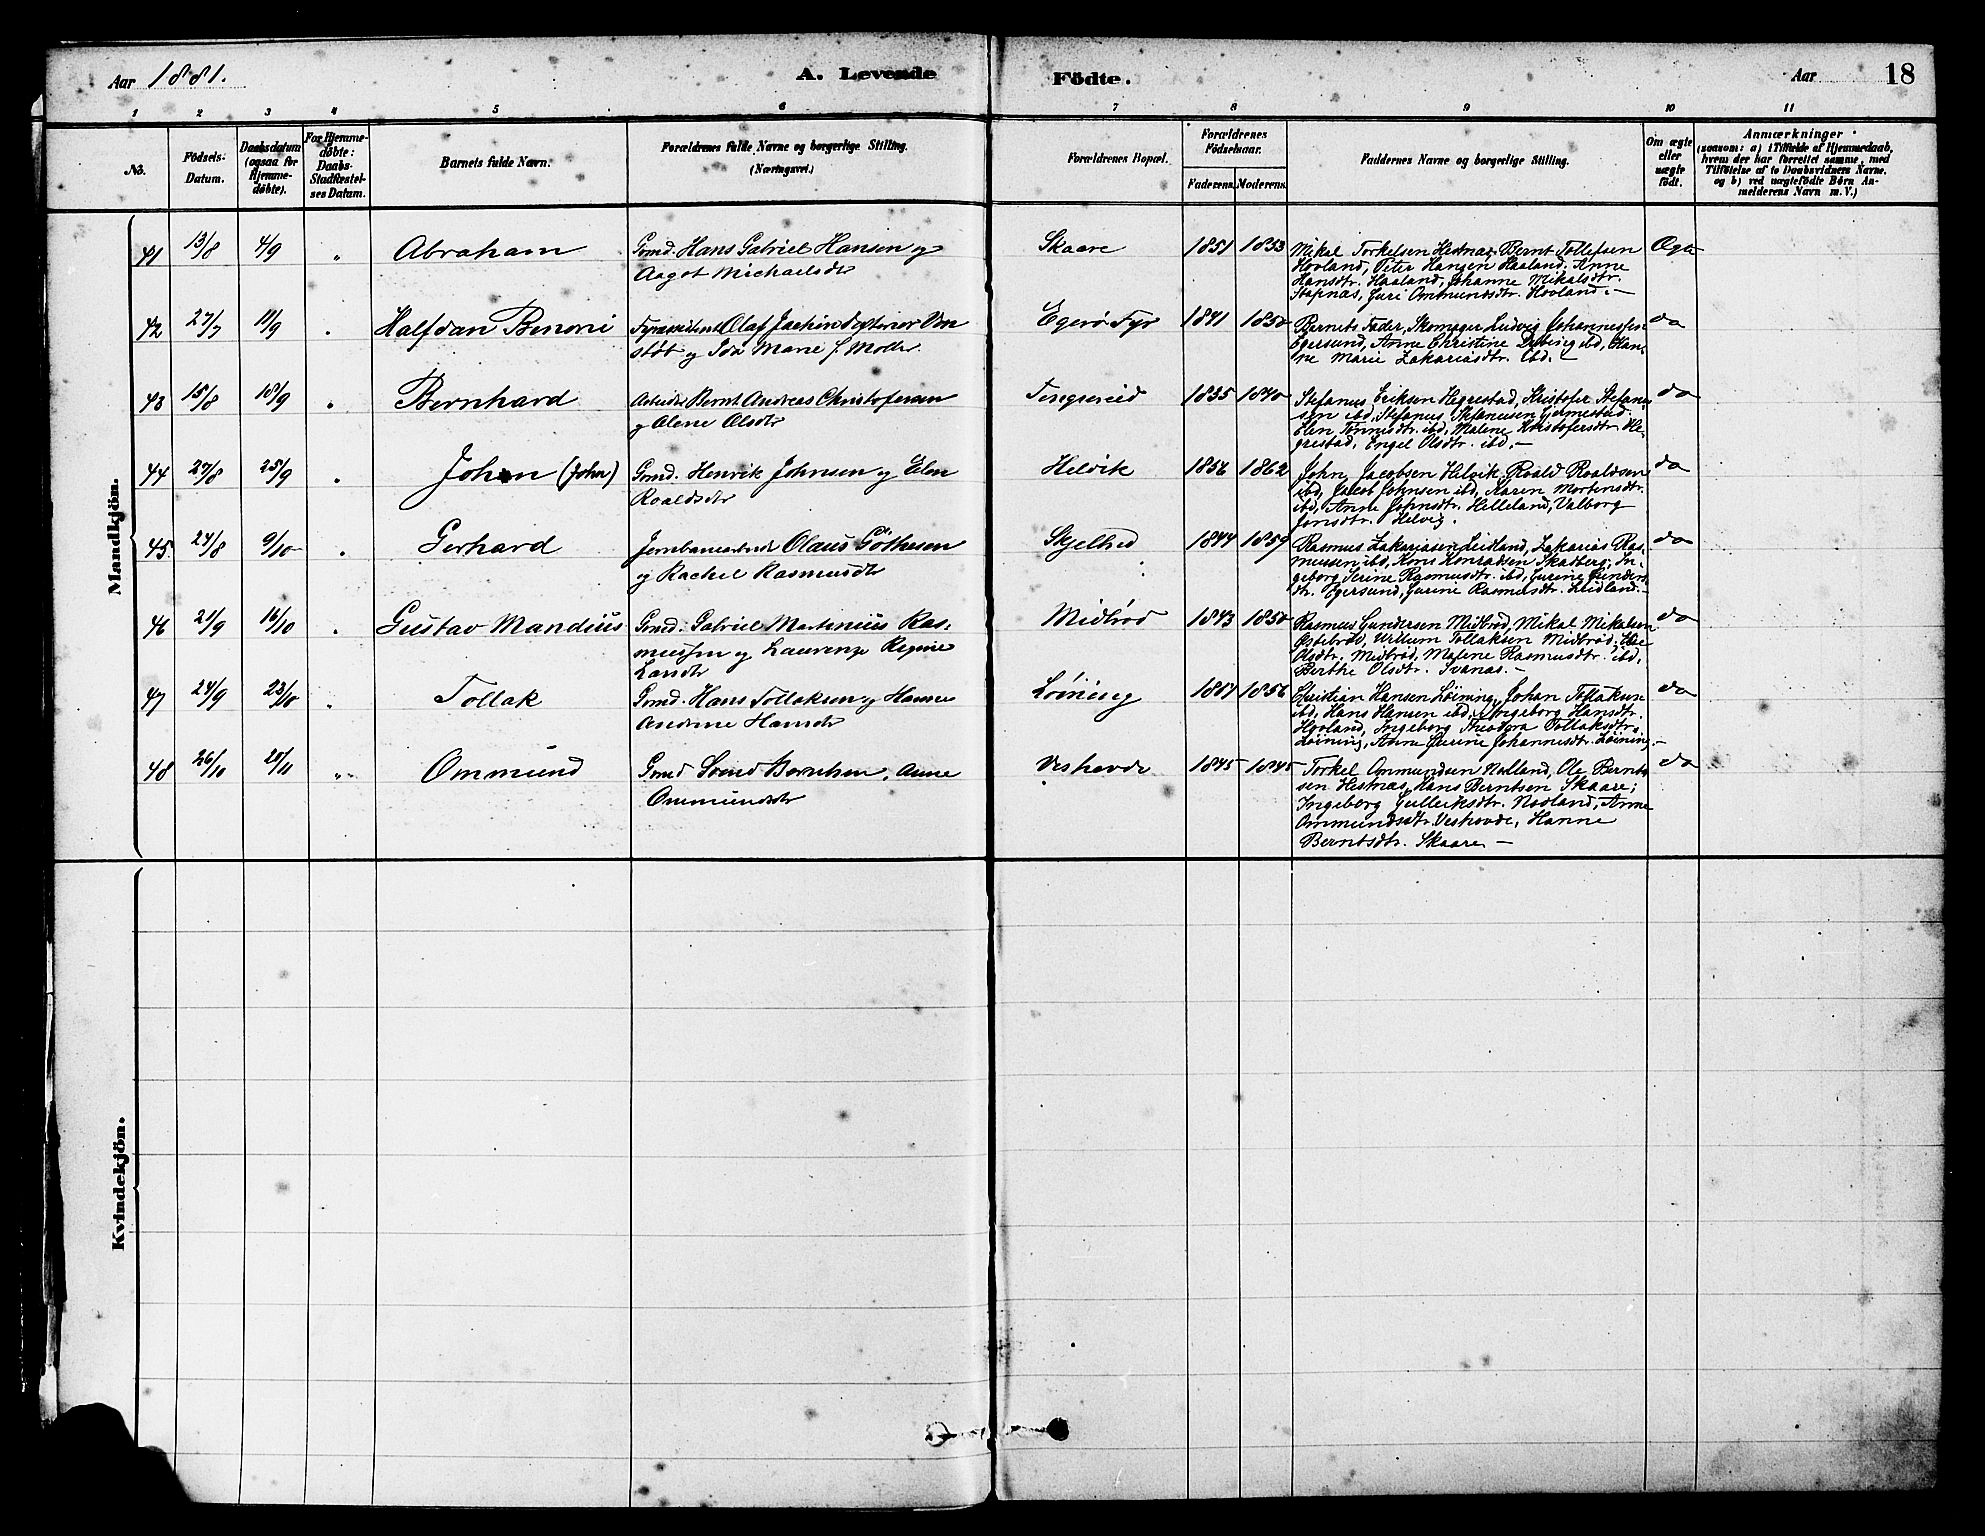 Aar 1881.
A. Levende Födte.
Aar
18
1 2 3 4 5 6 7 8 9 10 11
No.
Födsels-Datum.
Daabsdatum (ogsaa for Hjemme-døbte).
For Hjemme-døbte: Daabs-Stadfæstel-ses Datum.
Barnets fulde Navn.
Forældrenes fulde Navne og borgerlige Stilling. (Næringsvei.)
Forældrenes Bopæl.
Forældrenes Födselsaar.
Faderens. Moderens.
Faddernes Navne og borgerlige Stilling.
Om ægte eller uægte födt.
Anmærkninger
(saasom: a) i Tilfælde af Hjemmedaab,
hvem der har forrettet samme, med
Tilföielse af to Daabsvidners Navne,
og b) ved uægtefödte Børn An-
melderens Navn m. V.)
Mandkjön.
41 13/8 4/9 " Abraham
Gmd. Hans Gabriel Hansen og
Aagot Michaelsdtr
Skaare 1851 1853
Mikal Torkelsen Hestnas, Bernt Tollefsen
Hovland, Peter Hansen Haaland, Anne
Hansdtr. Haaland, Johanne Mikalsdtr.
Stapnas, Guri Ommundsdtr. Hovland. —
Ægte
42 27/7 11/9 " Halfdan Benoni
Olaf Jachin
og Ida Marie f. Moller.
Egerö Fyr 1841 1850
Barnets Fader, Skomager Ludvig Johannessen
Egersund, Anne Christine ibd, Han-
ne Marie Zakariasdtr. ibd. —
do
43 15/8 18/9 " Bernhard
Arbeider Bernt Andreas Christofersen
og Olene Olsdtr
Tengsereid 1835 1840
Stefanus Eriksen Hegrestad, Kristofer Stefanu-
sen ibd, Stefanus Stefanusen Gjermestad
Elen Tønnisdtr. ibd, Malene Kristofersdtr. He-
grestad, Engel Olsdtr. ibd. —
do
44 27/8 25/9 " Johan (John)
Gmd. Henrik Johnsen og Elen
Roaldsdtr
Helvik 1856 1862
John Jacobsen Helvik, Roald Roaldsen
ibd, Jacob Johnsen ibd, Karen Mortensdtr.
ibd, Anne Johnsdtr. Helleland, Valborg
Jonsdtr. Helvig.
do
45. 24/8 9/10 " Gerhard
Jernbanearbeider Olaus Göthesen
og Rachel Rasmusdtr
Skjelbred 1844 1859
Rasmus Zakariasen Leidland, Zakarias Ras-
musen ibd, Kons Konradsen Skadberg, In-
geborg Serine Rasmusdtr. ibd, Gurine Gunders-
dtr. Egersund, Gurine Rasmusdtr. Leidland. —
do
46 21/9 16/10 " Gustav Mandius
Gmd. Gabriel Martinius Ras-
mussen og Laurenze Regine
Larsdtr
Midbröd 1843 1850
Rasmus Gundersen Midbröd, Mikal Mikalsen
Ostebröd, Villum Tollaksen Midbröd,
Olsdtr. Midbröd, Malene Rasmusdtr. ibd,
Berthe Olsdtr. Svanas. —
do
47 24/9 23/10 " Tollak
Gmd. Hans Tollaksen og Hanne
Aserine Hansdtr
Löining 1857 1856
Christian Hansen Löining, Johan Tollaksen
ibd, Hans Hansen ibd, Ingeborg Hansdtr.
Hovland, Ingeborg Theodora Tollaksdtr.
Löining, Anne Gurine Johannesdtr. Löining. —
do
48 26/10 20/11 " Ommund
Gmd Svend Berntsen, Anne
Ommundsdtr
Veshovde 1845 1845
Torkel Ommundsen Nodland, Ole Bernt-
sen Hestnas, Hans Berntsen Skaare;
Ingeborg Gulleiksdtr. Nodland, Anne
Ommundsdtr. Veshovde, Hanne
Berntsdtr. Skaare. —
do
Kvindekjön.